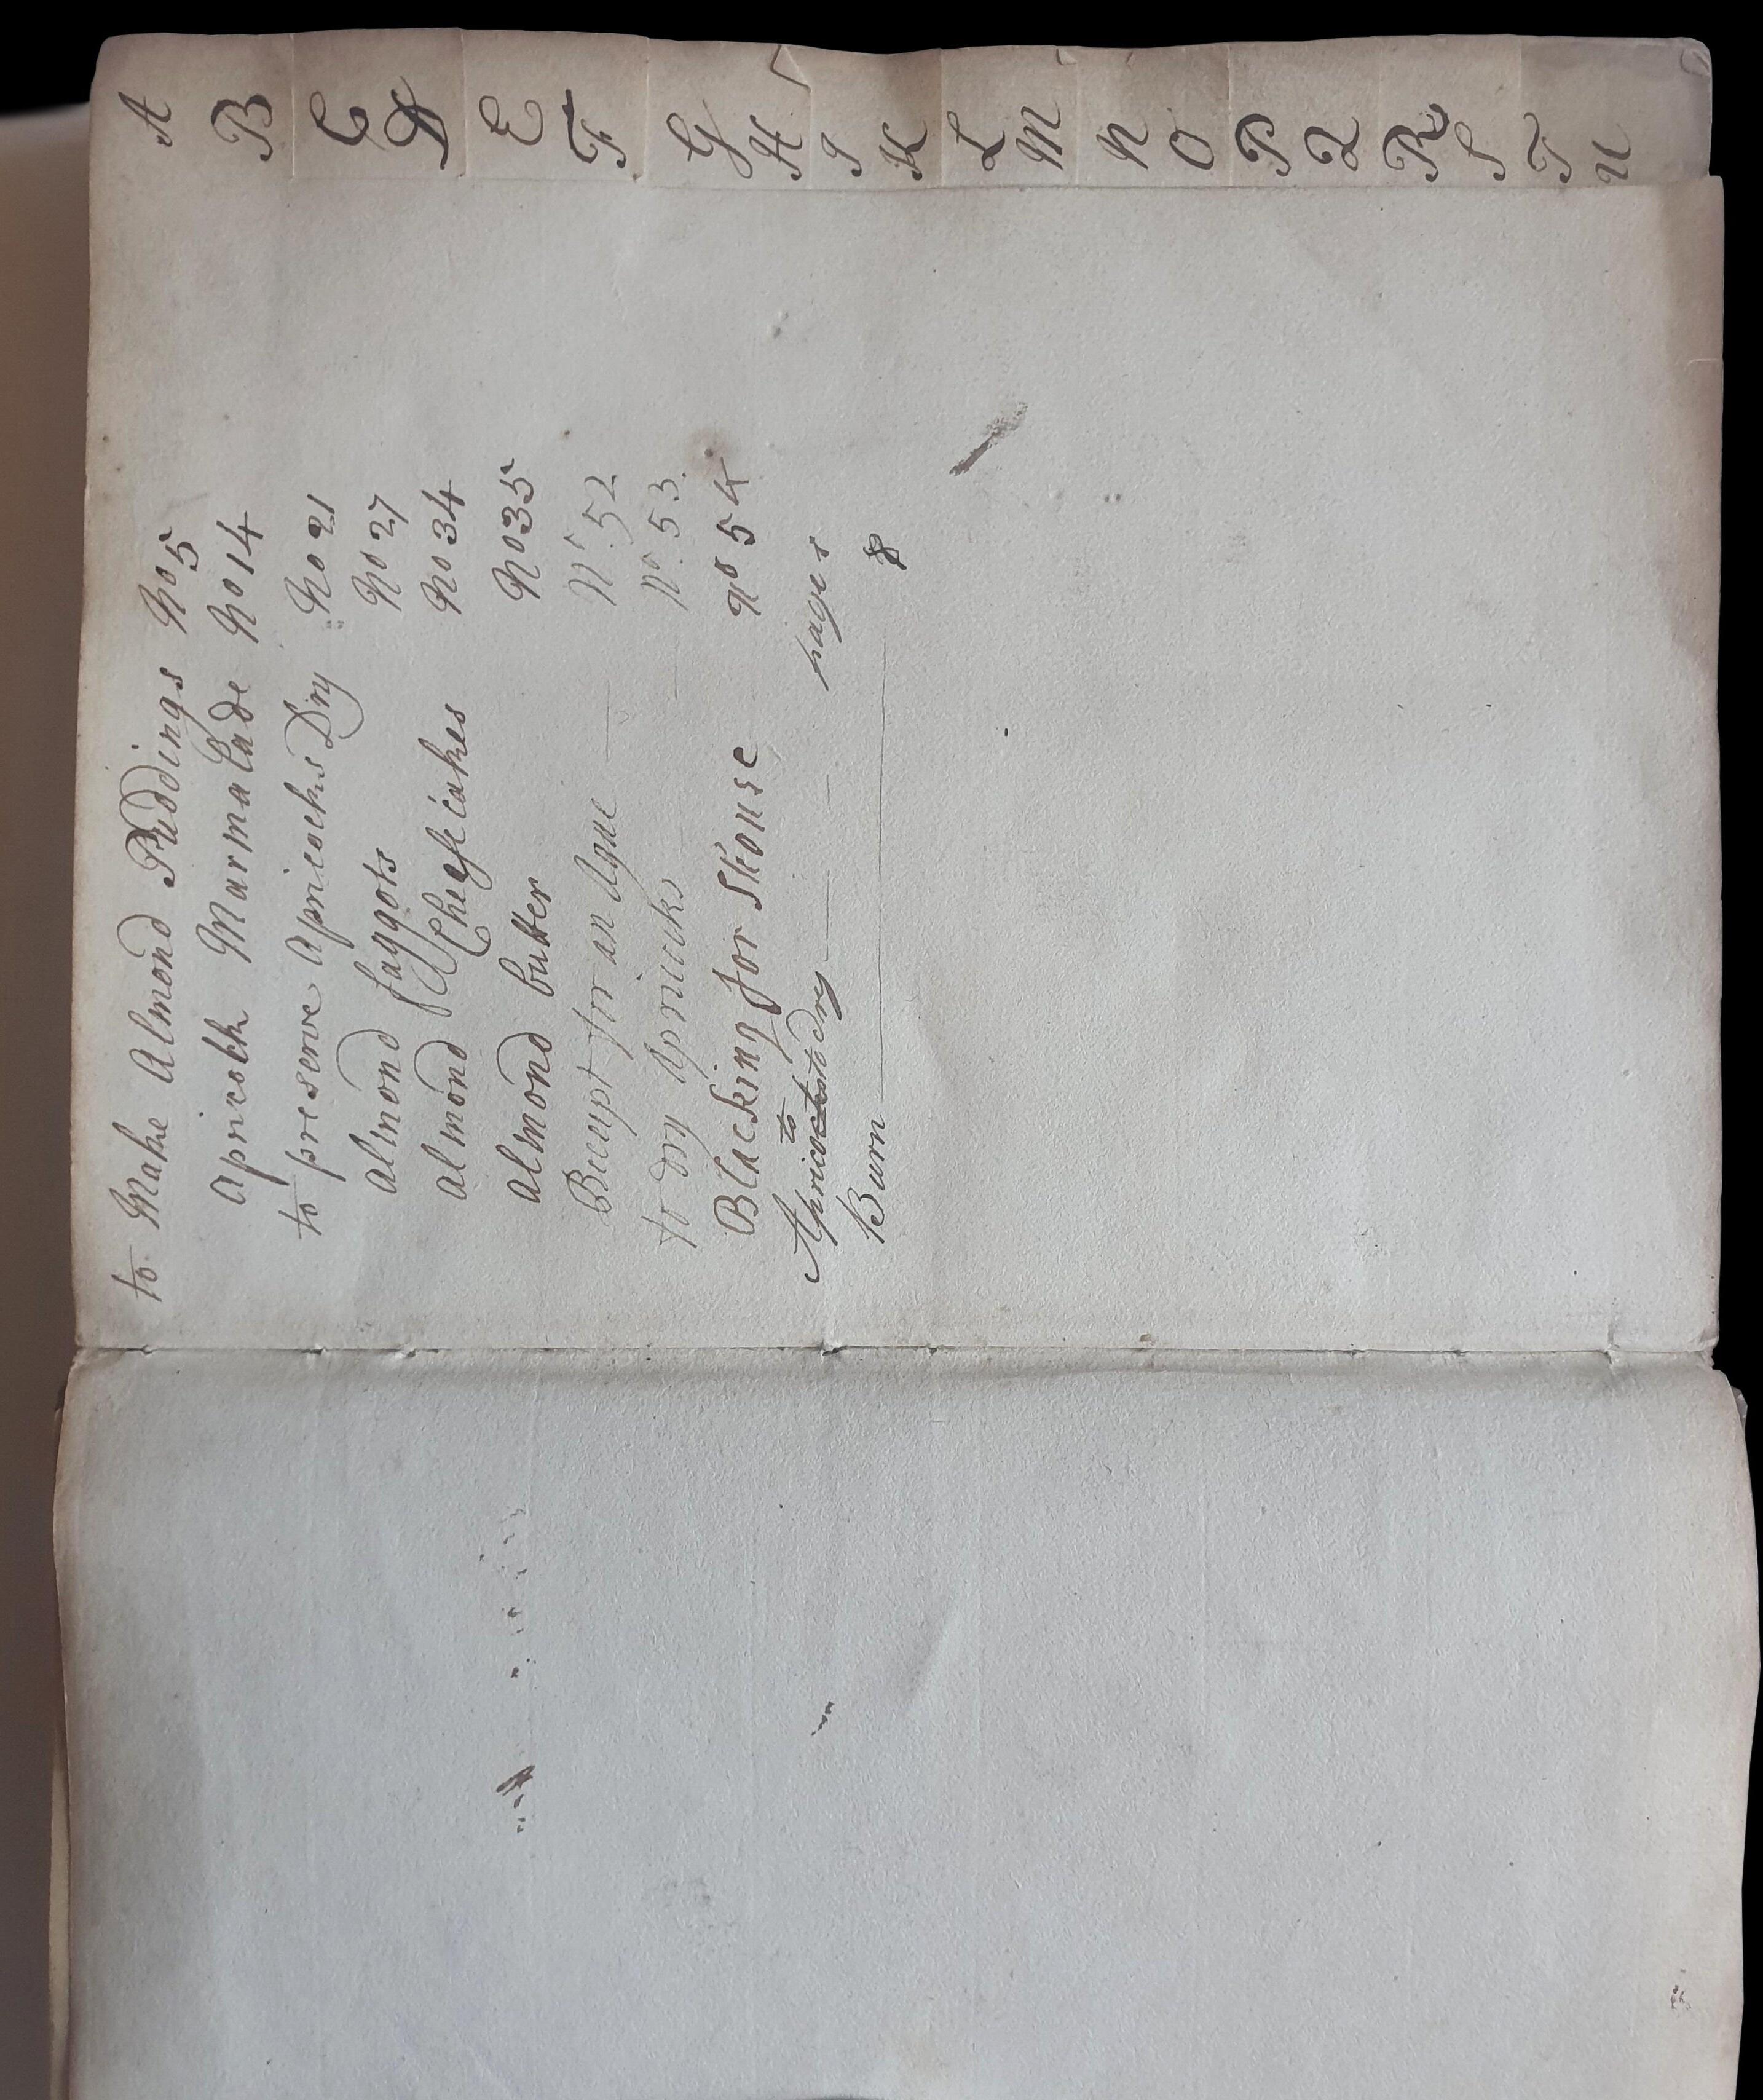 to Make Almond Puddings No 5
Apricock Marmalade No 14
to preserve Apricocks Dry No 21
Almond faggots No 27
Almond Cheese cakes No 34
Almond butter No 35
Receipt for an Ague No. 52
to dry Apricocks No. 53
Blacking for Shouse No 54
Apricots to Dry pages
Burn 8
A
B
C
D
E
F
G
H
I
K
L
M
N
O
P
Q
R
S
T
U